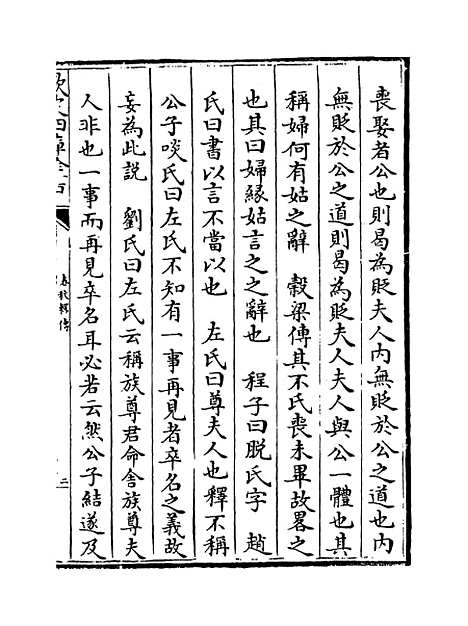 喪娶者公也則曷為貶夫人内無貶於公之道也内
無貶於公之道則曷為貶夫人夫人與公一體也其
稱婦何有姑之辭　穀梁傳其不氏喪未畢故畧之
也其曰婦緣姑言之之辭也　程子曰脱氏字　趙
氏曰書以言不當以也　左氏曰尊夫人也釋不稱
公子啖氏曰左氏不知有一事再見者卒名之義故
妄為此說　劉氏曰左氏云稱族尊君命舍族尊夫
人非也一事而再見卒名耳必若云然公子結遂及
欽定四庫全書
春秋輯傳
三